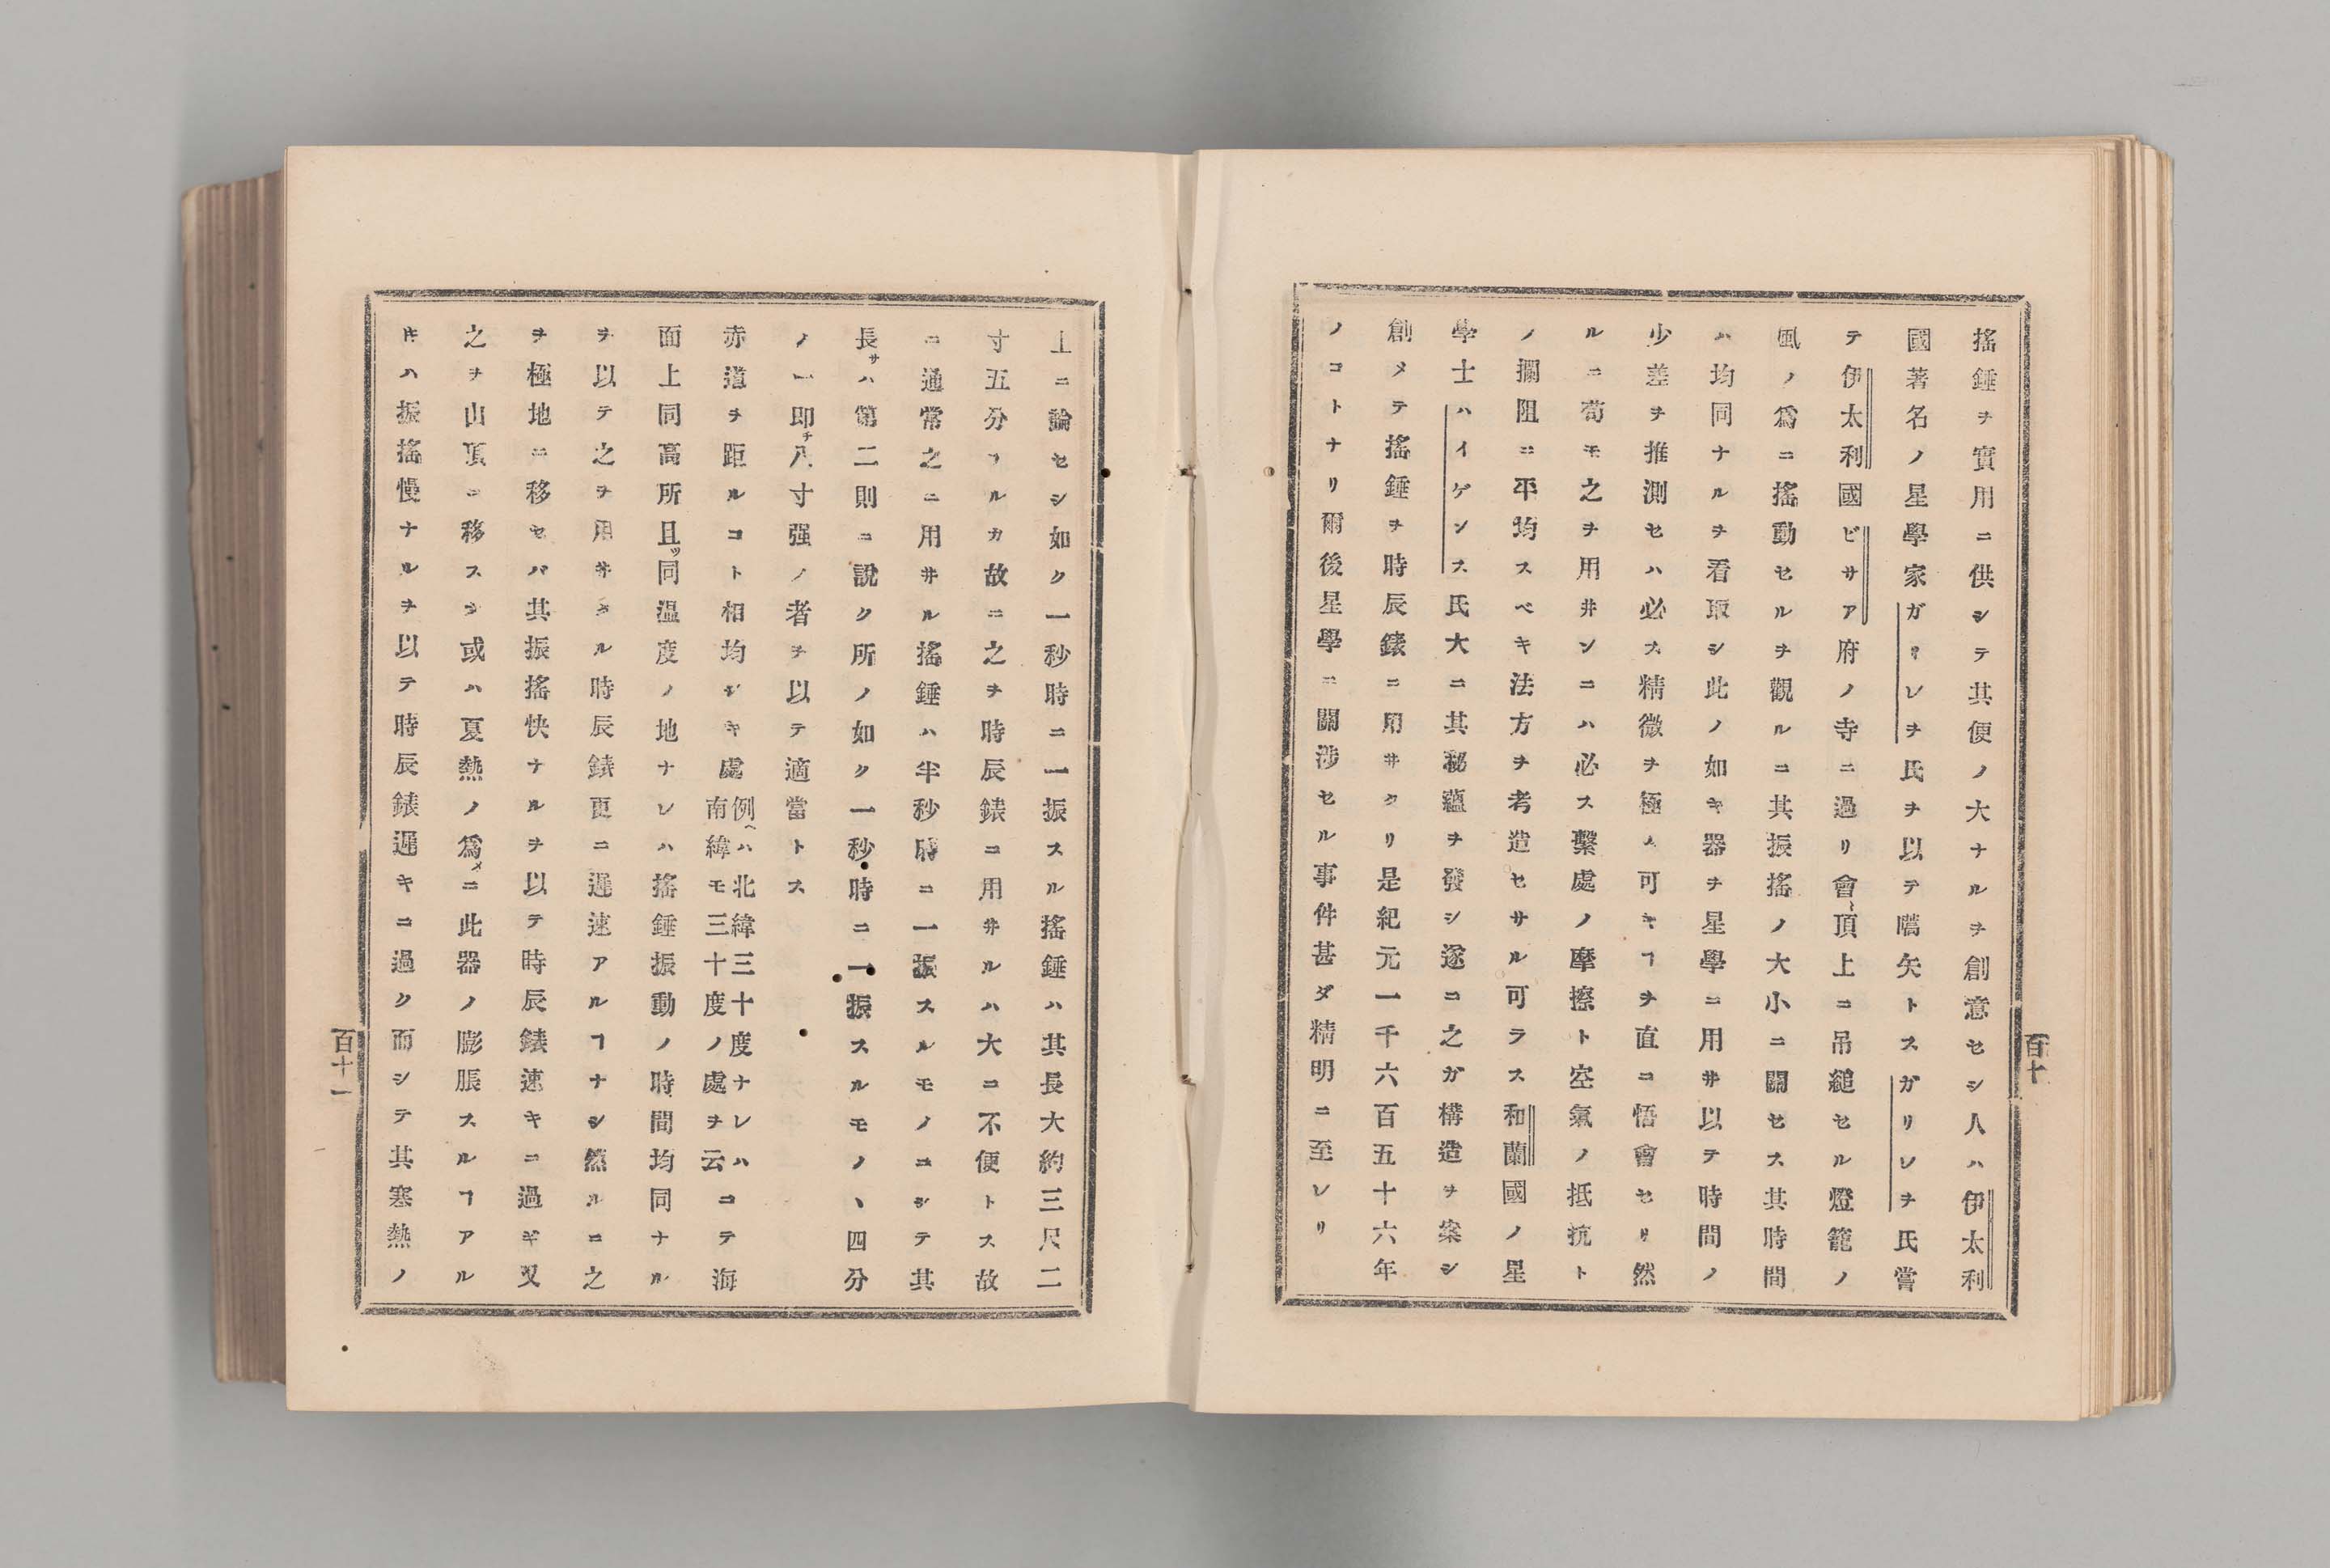 搖錘ヲ實用ニ供シテ其便ノ大ナルヲ創意セシ人ハ伊太利
國著名ノ星學家ガリレヲ氏ヲ以テ嚆矢トスガリレヲ氏嘗
テ伊太利國ピサア府ノ寺ニ過リ會〻頂上ニ吊縋セル燈籠ノ
風ノ爲ニ搖動セルヲ觀ルニ其振搖ノ大小ニ關セス其時間
ハ均同ナルヲ看取シ此ノ如キ器ヲ星學ニ用井以テ時間ノ
少差ヲ推測セハ必ス精微ヲ極ム可キヿヲ直ニ悟會セリ然
ルニ苟モ之ヲ用井ンニハ必ス繫處ノ摩擦ト空氣ノ抵抗ト
ノ攔阻ニ平均スベキ法方ヲ考造セサル可ラス和蘭國ノ星
學士ハイゲンス氏大ニ其秘蘊ヲ發シ遂ニ之ガ構造ヲ案シ
創メテ搖錘ヲ時辰錶ニ用井タリ是紀元一千六百五十六年
ノコトナリ爾後星學ニ關涉セル事件甚ダ精明ニ至レリ
百十
上ニ論セシ如ク一秒時ニ一振スル搖錘ハ其長大約三尺二
寸五分ナルカ故ニ之ヲ時辰錶ニ用井ルハ大ニ不便トス故
ニ通常之ニ用井ル搖錘ハ半秒時ニ一振スルモノニシテ其
長サハ第二則ニ說ク所ノ如ク一秒時ニ一振スルモノヽ四分
ノ一即チ八寸强ノ者ヲ以テ適當トス
赤道ヲ距ルコト相均シキ處例ヘハ北緯三十度ナレハ南緯モ三十度ノ處ヲ云ニテ海
面上同高所且ツ同溫度ノ地ナレハ搖錘振動ノ時間均同ナル
ヲ以テ之ヲ用井タル時辰錶更ニ遲速アルヿナシ然ルニ之
ヲ極地ニ移セバ其振搖快ナルヲ以テ時辰錶速キニ過ギ又
之ヲ山頂ニ移スカ或ハ夏熱ノ爲メニ此器ノ膨脹スルヿアル
𪜈ハ振搖慢ナルヲ以テ時辰錶遲キニ過ク而シテ其寒熱ノ
百十一